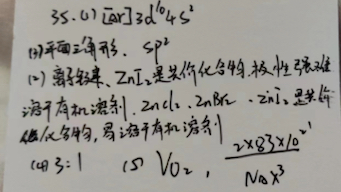 35.(1) [Ar]3d¹⁰4s²
(3)平面三角形. sp²
(2) 离子键, ZnF₂是共价化合物,极性强难
溶于有机溶剂. ZnCl₂. ZnBr₂. ZnI₂是共价
化合物,易溶于有机溶剂
(4) 3:1 (5) VO₂, 2×83×10²¹
Nᴀx³